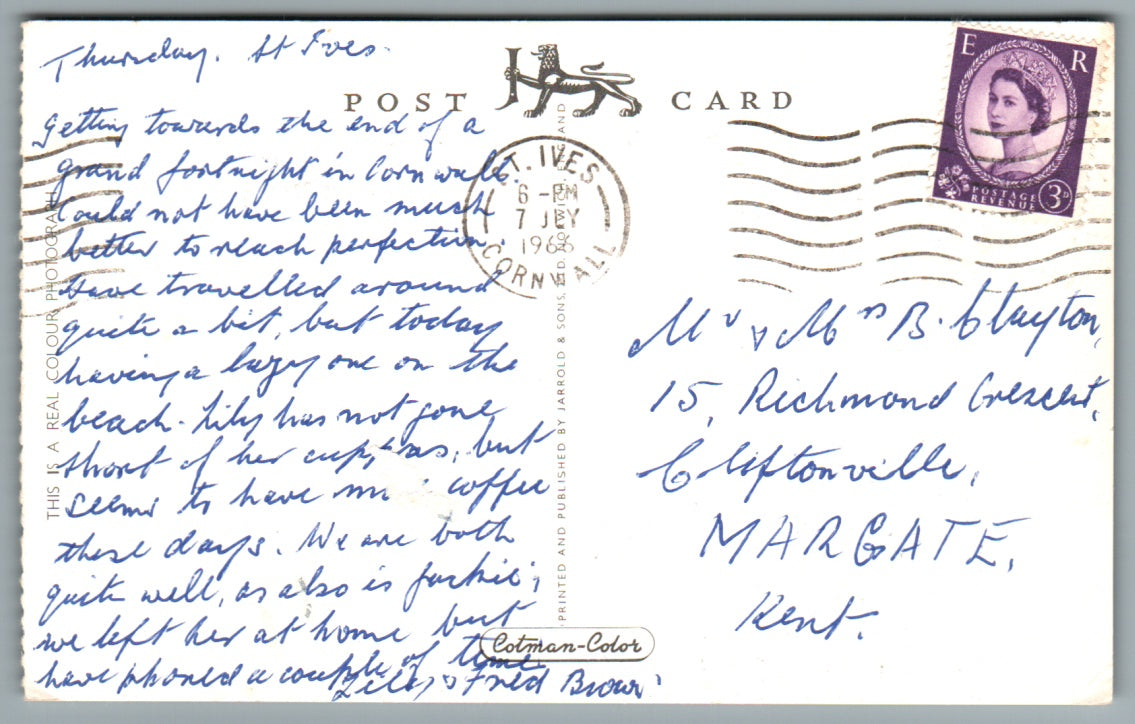 Thursday. St Ives.
Getting towards the end of a
grand fortnight in Cornwall
Could not have been much
better to reach perfection.
Have travelled around
quite a bit, but today
having a lazy one on the
beach. Lily has not gone
short of her cup, but
seems to have coffee
these days. We are both
quite well, as also is Jackie;
we left her at home but
have phoned a couple of times
& Fred Brown
POST CARD
ST. IVES
6 - PM
7 JLY
CORNWALL
E R
POSTAGE
REVENUE
3D
Mr & Mrs B. Clayton,
15, Richmond Crescent,
Cliftonville,
MARGATE,
Kent.
THIS IS A REAL COLOUR PHOTOGRAPH
PRINTED AND PUBLISHED BY JARROLD & SONS,
Cotman-Color